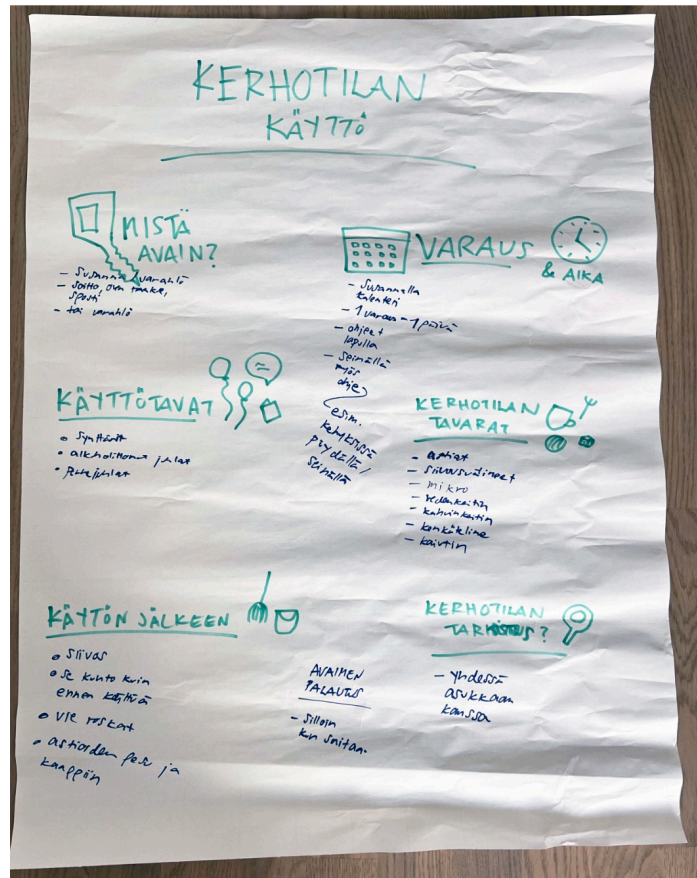 KERHOTILAN
KÄYTTÖ
MISTÄ
AVAIN?
- Susanna varahlö
- soitto, oven taakse,
sposti
- tai varahlö
VARAUS
& AIKA
- Susannalla
kalenteri
- 1 varaus = 1 päivä
- ohjeet
lapulla
- Seinällä
myös
ohje
esim.
kehyksissä
pöydällä /
seinällä
KÄYTTÖTAVAT
• Synttärit
• alkoholittomat juhlat
• perhejuhlat
KERHOTILAN
TAVARAT
- astiat
- siivousvälineet
- mikro
- vedenkeitin
- kahvinkeitin
- kaiutin
KÄYTÖN JÄLKEEN
• siivous
• se kunto kuin
ennen käyttöä
• vie roskat
• astioiden pesu ja
kaappiin
AVAIMEN
PALAUTUS
- silloin
kun soitan.
KERHOTILAN
TARKISTUS?
- yhdessä
asukkaan
kanssa